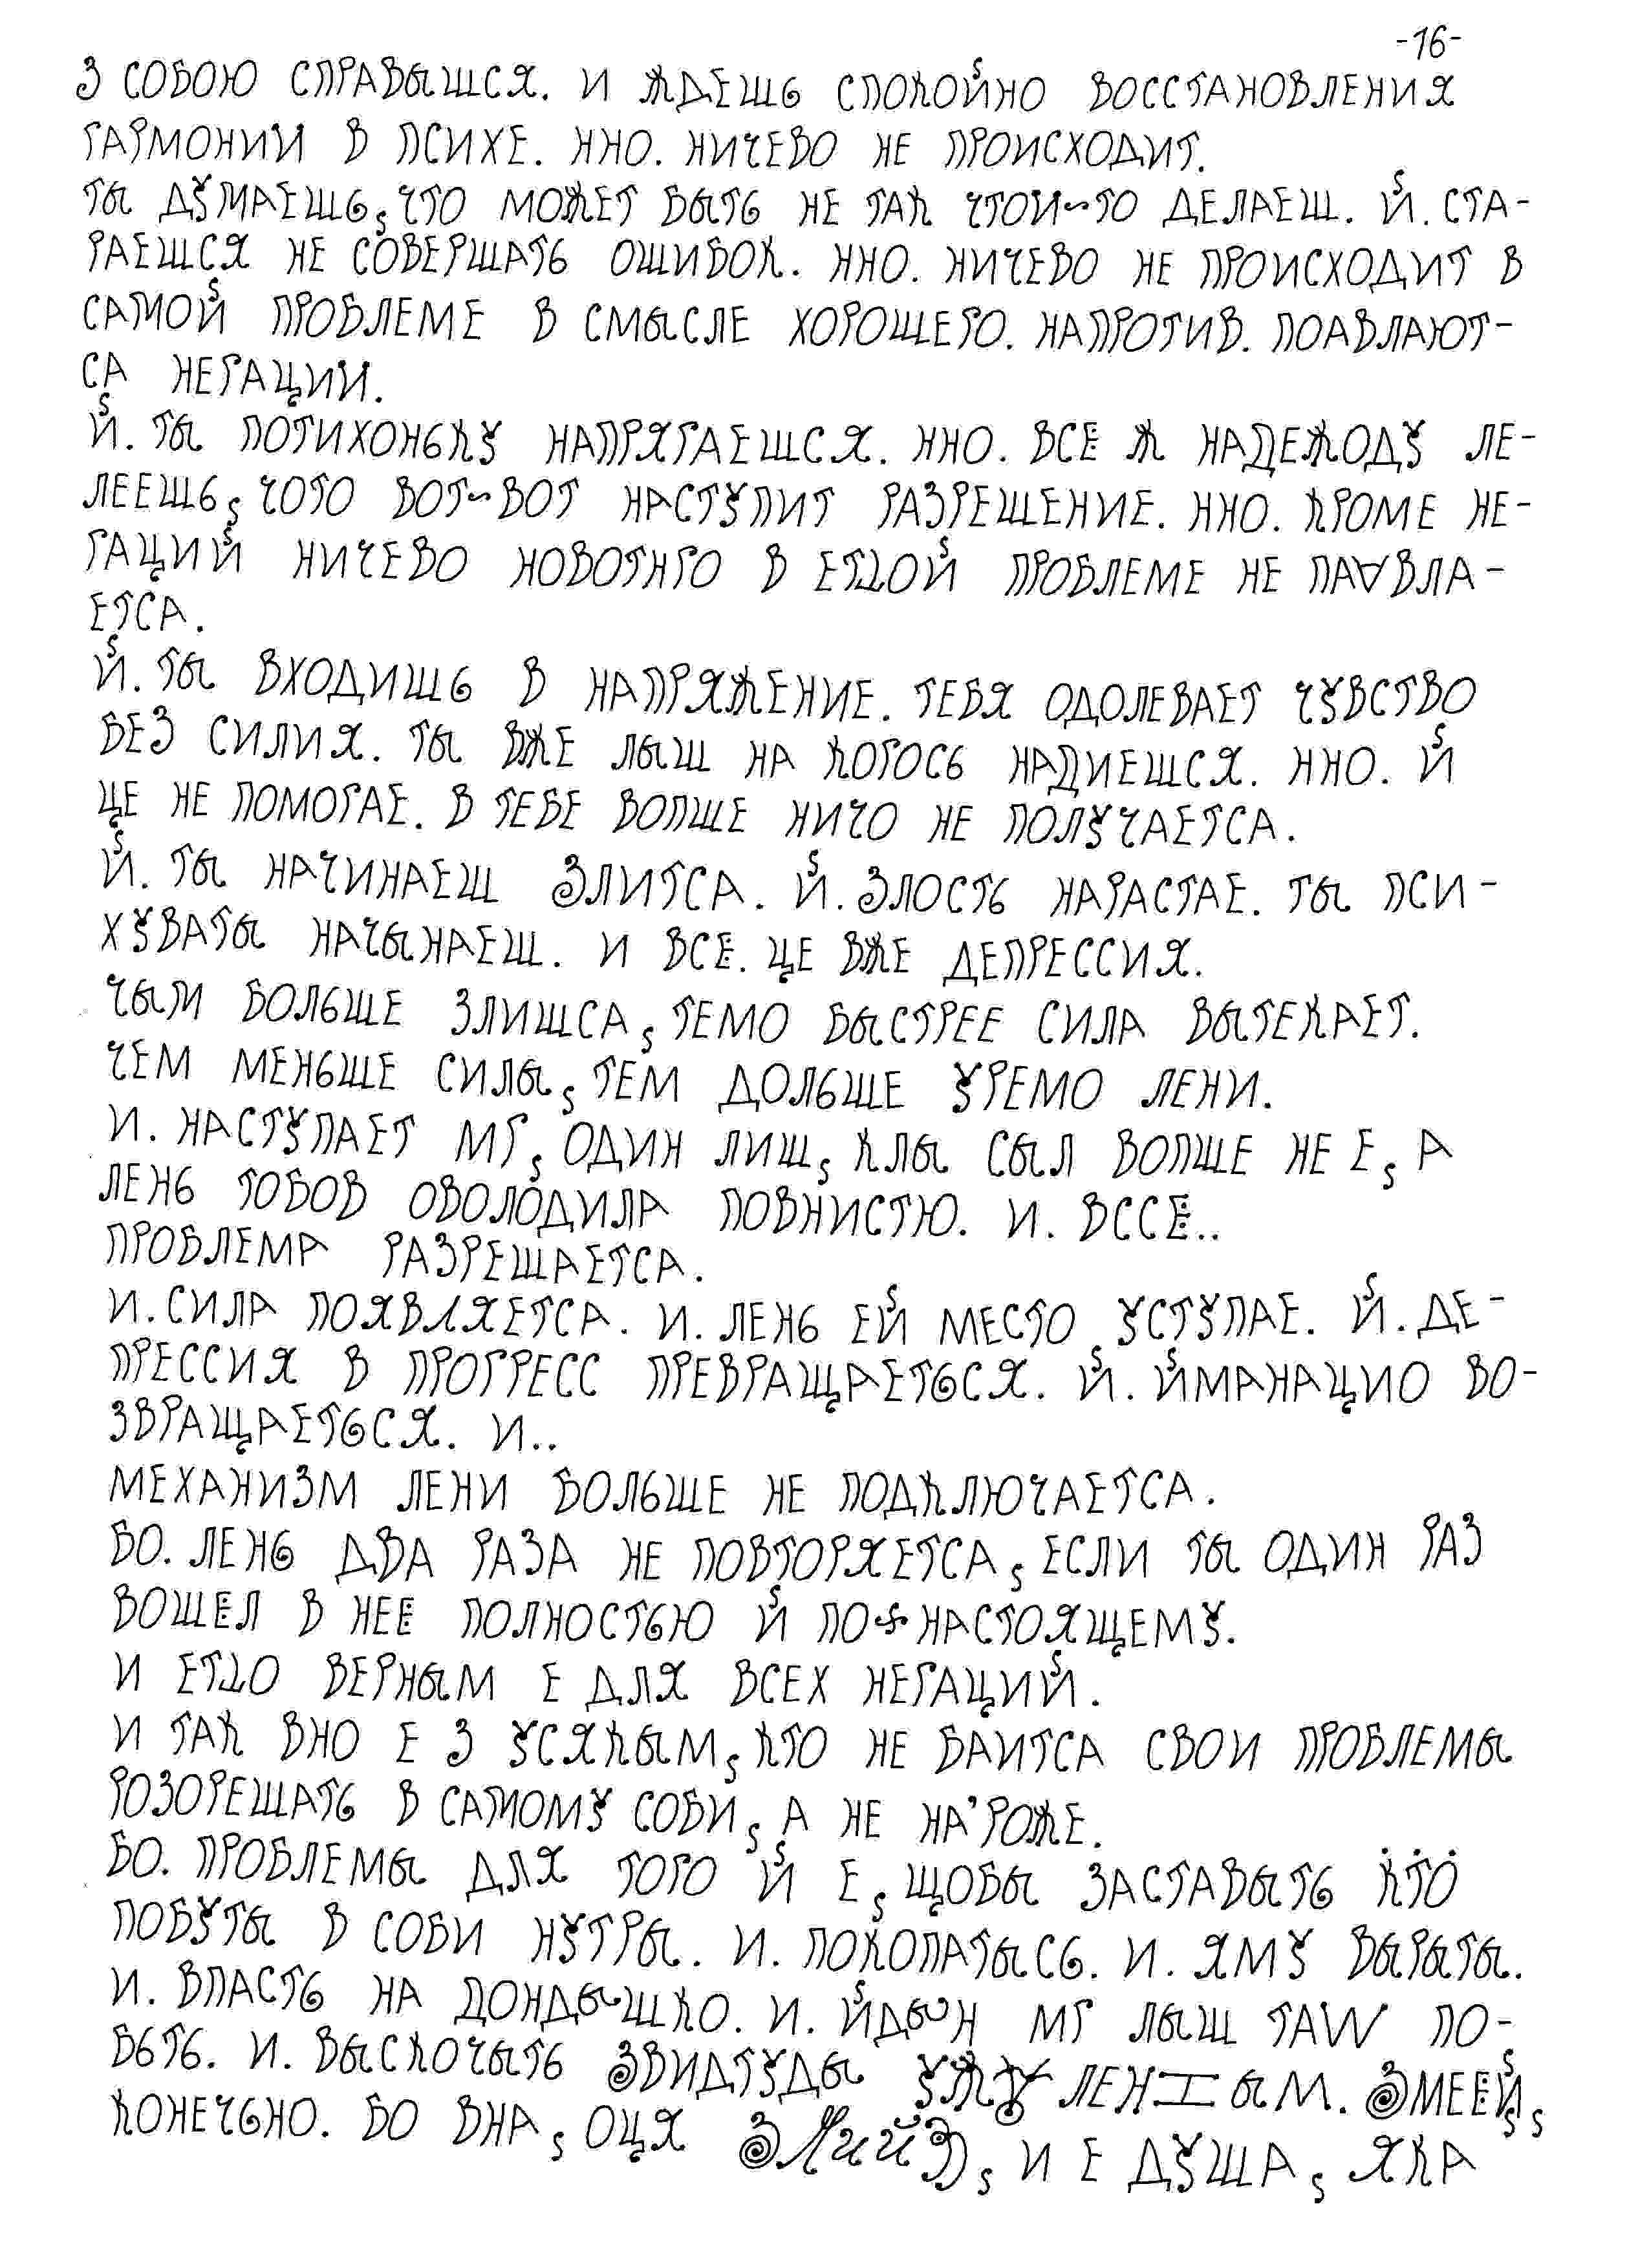 -16-
З СОБОЮ СПРАВЫШСЯ. И ЖДЕШЬ СПОКОЙНО ВОССТАНОВЛЕНИЯ
ГАРМОНИИ В ПСИХЕ. ННО. НИЧЕВО НЕ ПРОИСХОДИТ.
ТЫ ДУМАЕШЬ, ЧТО МОЖЕТ БЫТЬ НЕ ТАК ЧТОИ~ТО ДЕЛАЕШ. Й. СТА-
РАЕШСЯ НЕ СОВЕРШАТЬ ОШИБОК. ННО. НИЧЕВО НЕ ПРОИСХОДИТ В
САМОЙ ПРОБЛЕМЕ В СМЫСЛЕ ХОРОШЕГО. НАПРОТИВ. ПОАВЛАЮТ-
СА НЕГАЦИИ.
Й. ТЫ ПОТИХОНЬКУ НАПРЯГАЕШСЯ. ННО. ВСЁ Ж НАДЕЖОДУ ЛЕ-
ЛЕЕШЬ, ЧОТО ВОТ~ВОТ НАСТУПИТ РАЗРЕШЕНИЕ. ННО. КРОМЕ НЕ-
ГАЦИЙ НИЧЕВО НОВОТНГО В ПРОБЛЕМЕ НЕ ПА∀ВЛА-
ЕТСА.
Й. ТЫ ВХОДИШЬ В НАПРЯЖЕНИЕ. ТЕБЯ ОДОЛЕВАЕТ ЧУВСТВО
БЕЗ СИЛИЯ. ТЫ ВЖЕ ЛЫШ НА КОГОСЬ НАДИЕШСЯ. ННО. Й
ЦЕ НЕ ПОМОГАЕ. В ТЕБЕ ВОПШЕ НИЧО НЕ ПОЛУЧАЕТСА.
Й. ТЫ НАЧИНАЕШ ЗЛИТСА. Й. ЗЛОСТЬ НАРАСТАЕ. ТЫ ПСИ-
ХУВАТЫ НАЧЫНАЕШ. И ВСЁ. ЦЕ ВЖЕ ДЕПРЕССИЯ.
ЧЫМ БОЛЬШЕ ЗЛИШСА, ТЕМО БЫСТРЕЕ СИЛА ВЫТЕКАЕТ.
ЧЕМ МЕНЬШЕ СИЛЫ, ТЕМ ДОЛЬШЕ УРЕМО ЛЕНИ.
И. НАСТУПАЕТ МГ, ОДИН ЛИШ, КЛЫ СЫЛ ВОПШЕ НЕ Е, А
ЛЕНЬ ТОБОВ ОВОЛОДИЛА ПОВНИСТЮ. И. ВССЁ..
ПРОБЛЕМА РАЗРЕШАЕТСА.
И. СИЛА ПОЯВЛЯЕТСА. И. ЛЕНЬ ЕЙ МЕСТО УСТУПАЕ. Й. ДЕ-
ПРЕССИЯ В ПРОГРЕСС ПРЕВРАЩАЕТЬСЯ. Й. ЙМАНАЦИО ВО-
ЗВРАЩАЕТЬСЯ. И..
МЕХАНИЗМ ЛЕНИ БОЛЬШЕ НЕ ПОДКЛЮЧАЕТСА.
БО. ЛЕНЬ ДВА РАЗА НЕ ПОВТОРЯЕТСА, ЕСЛИ ТЫ ОДИН РАЗ
ВОШЁЛ В НЕЁ ПОЛНОСТЬЮ Й ПО~НАСТОЯЩЕМУ.
И ВЕРНЫМ Е ДЛЯ ВСЕХ НЕГАЦИЙ.
И ТАК ВНО Е З УСЯКЫМ, КТО НЕ БАИТСА СВОИ ПРОБЛЕМЫ
РОЗОРЕШАТЬ В САМОМУ СОБИ, А НЕ НА'РОЖЕ.
БО. ПРОБЛЕМЫ ДЛЯ ТОГО Й Е, ЩОБЫ ЗАСТАВЫТЬ КТО
ПОБУТЫ В СОБИ НУТРЫ. И. ПОКОПАТЫСЬ. И. ЯМУ ВЫРЫТЫ.
И. ВПАСТЬ НА ДОНДЫШКО. И. ЙДЫН МГ ЛЫШ ТАW ПО-
БЬТЬ. И. ВЫСКОЧЫТЬ ЗВИДТУДЫ УЖУ ЛЕНЫМ. ЗМЕЕЙ,
КОНЕЧЬНО. БО ВНА, ОЦЯ ЗЛИЙЗ, И Е ДУША, ЯКА